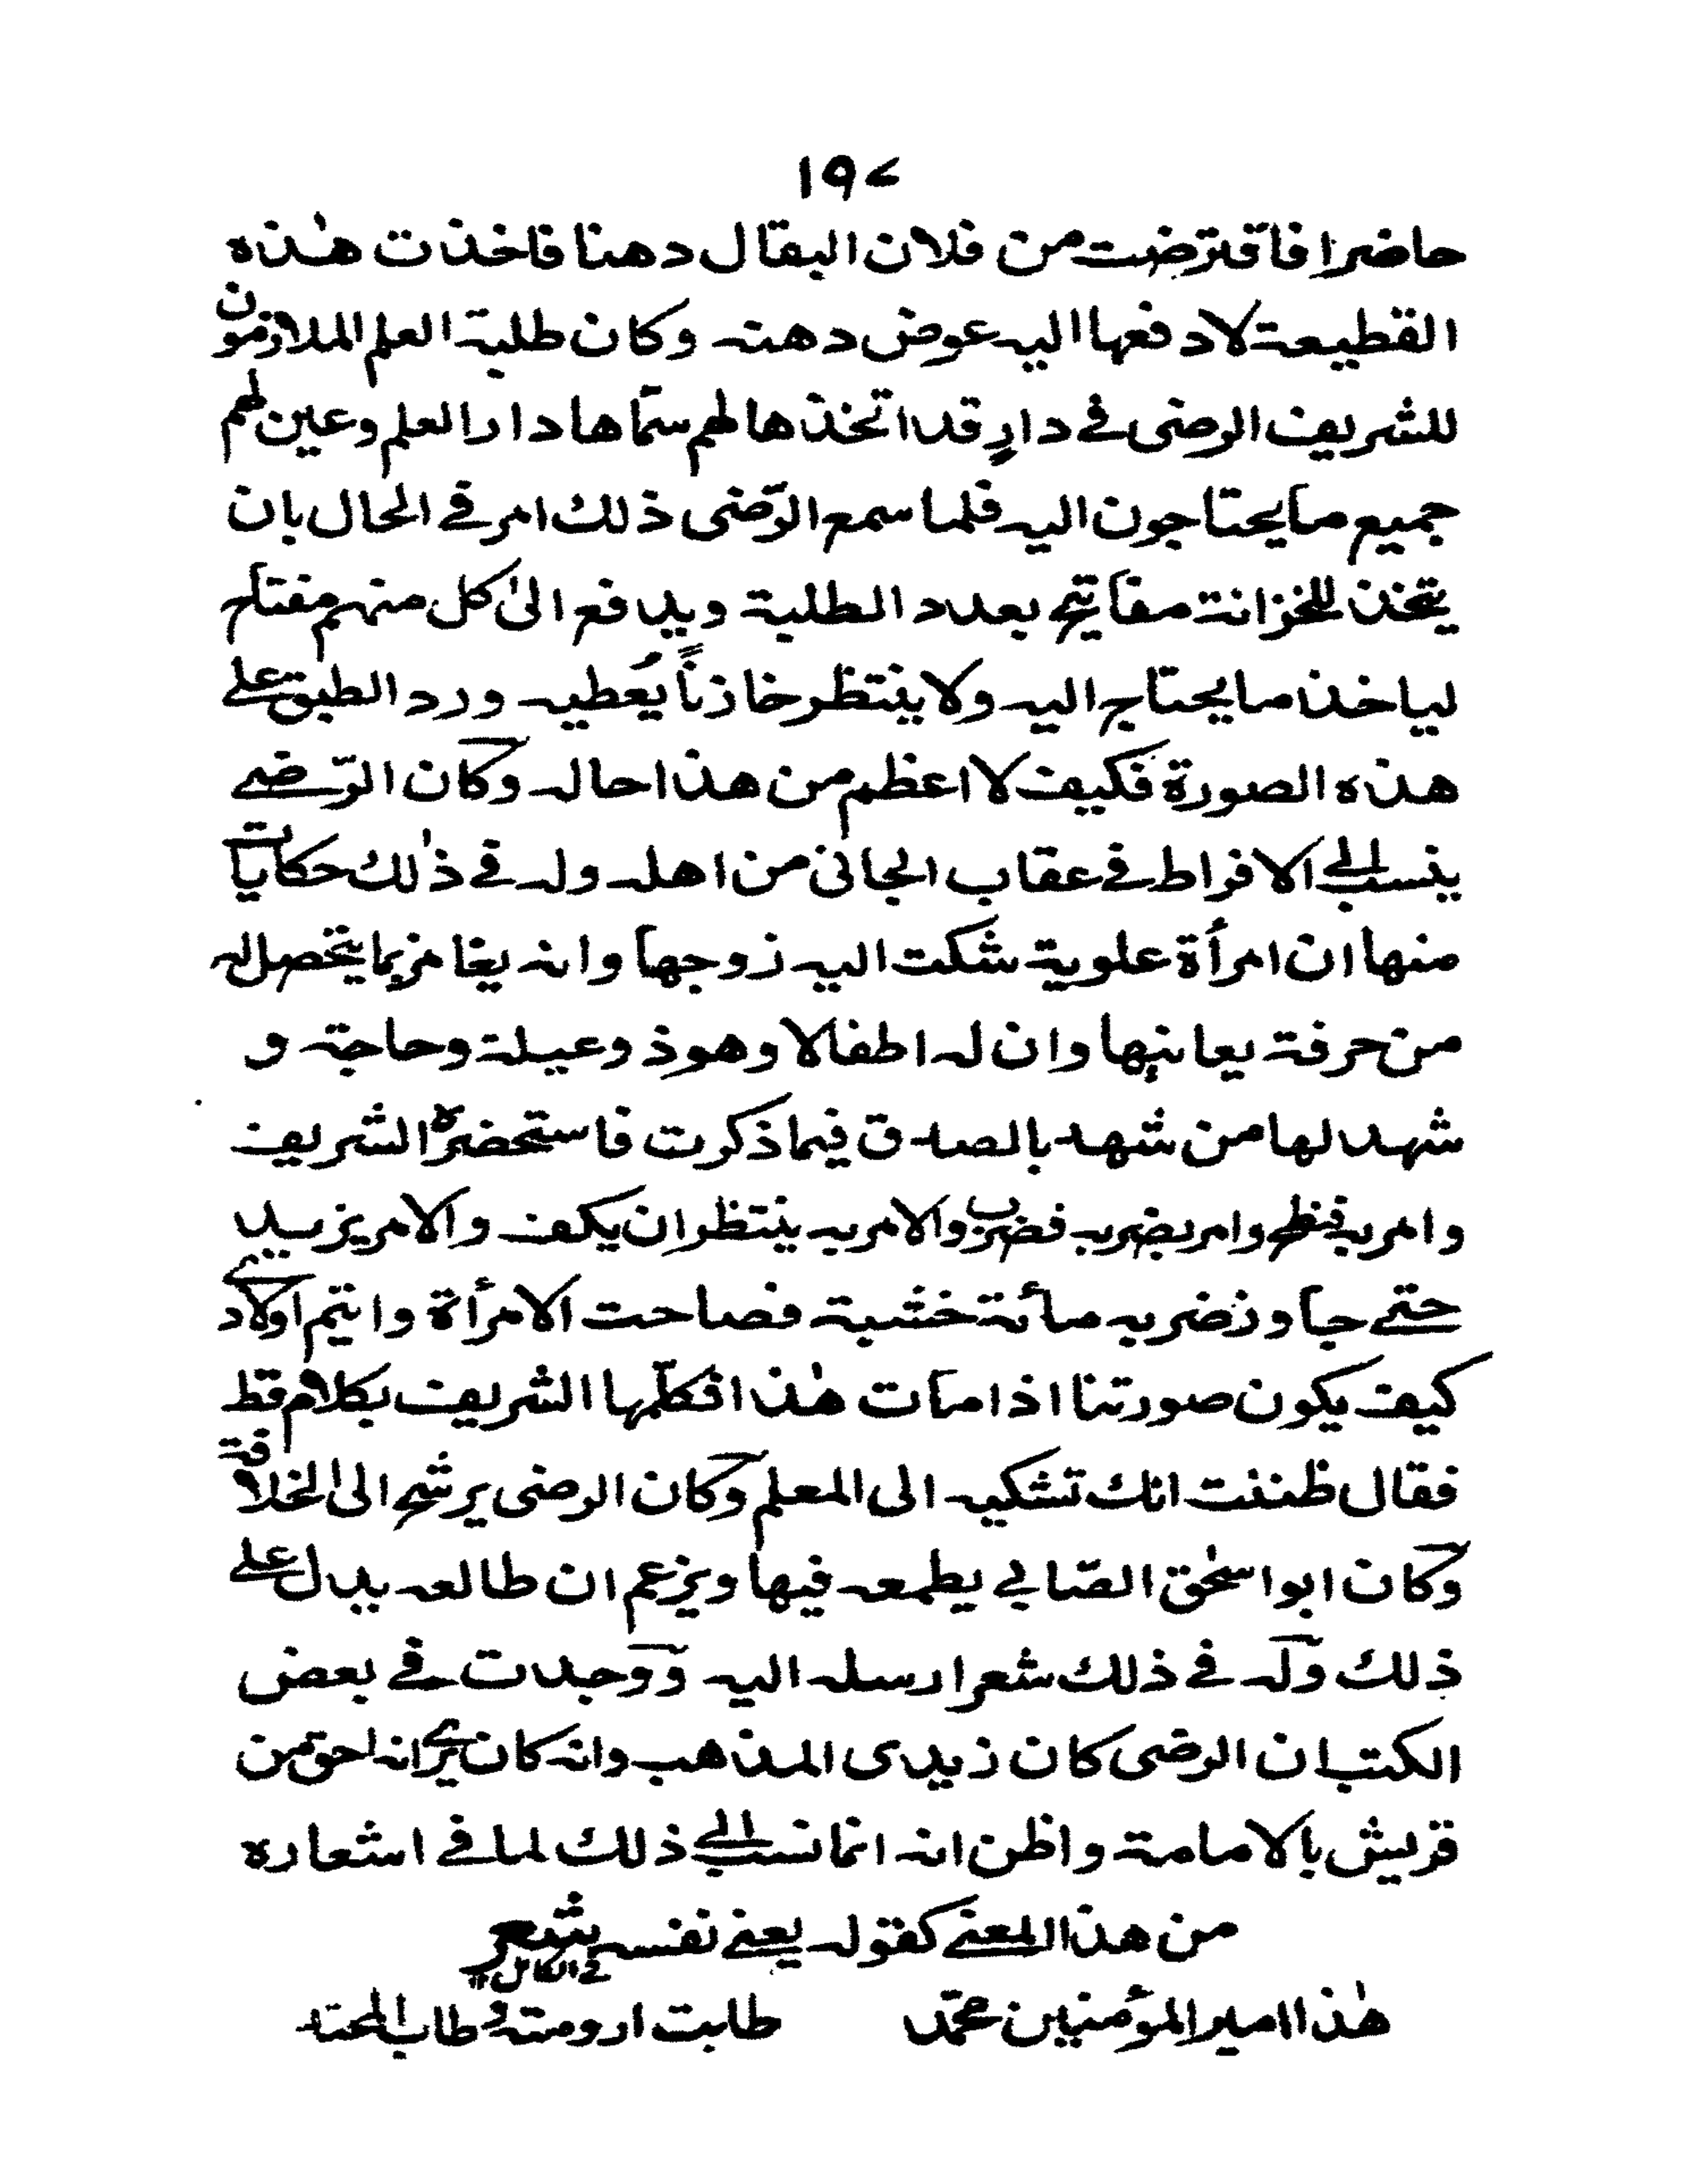 ١٩٧
حاضرا فاقترضت من فلان البقال دهنا فاخذت هٰذه
القطيعة لادفعها اليه عوض دهنه وكان طلبة العلم الملازمون
للشريف الرضى في دارٍ قد اتخذها لهم سمّاها دار العلم وعين لهم
جميع ما يحتاجون اليه فلما سمع الرّضى ذلك امر في الحال بان
يتخذ للخزانة مفاتيح بعدد الطلبة ويدافع الىٰ كل منهم مفتاح
لياخذ ما يحتاج اليه ولا ينتظر خازناً يُعطيه ورد الطبق على
هذه الصورة فكيف لا اعظم من هذا حاله وكان الرّضي
ينسب الى الافراط في عقاب الجانى من اهله وله في ذٰلك حكايات
منها ان امرأة علوية شكت اليه زوجها وانه يغامز بما يتحصل له
من حرفة يعانيها وان له اطفالا وهو ذو عيلة وحاجة و
شهد لها من شهد بالصدق فيما ذكرت فاستحضره الشريف
وامر به فبطح وامر بضربه فضرب والامر به ينتظر ان يكف والامر يزيد
حتى جاوز ضربه مائة خشبة فصاحت الامرأة وايتم اولادي
كيف يكون صورتنا اذا مات هٰذا فكلّمها الشريف بكلام فظ
فقال ظننت انك تشكيه الى المعلم وكان الرضى يرشح الىٰ الخلافة
وكان ابو اسحٰق الصّابي يطمعه فيها ويزعم ان طالعه يدل على
ذلك وله في ذلك شعر ارسله اليه ووجدت في بعض
الكتب ان الرضى كان زيدى المذهب وانه كان يرى انه احق من
قريش بالامامة واظن انه انما نسب الى ذلك لما في اشعاره
من هذا المعنى كقوله يعنى نفسه شعر
في الكامل
هٰذا امير المؤمنين محمّد طابت ارومته وطاب المحتد